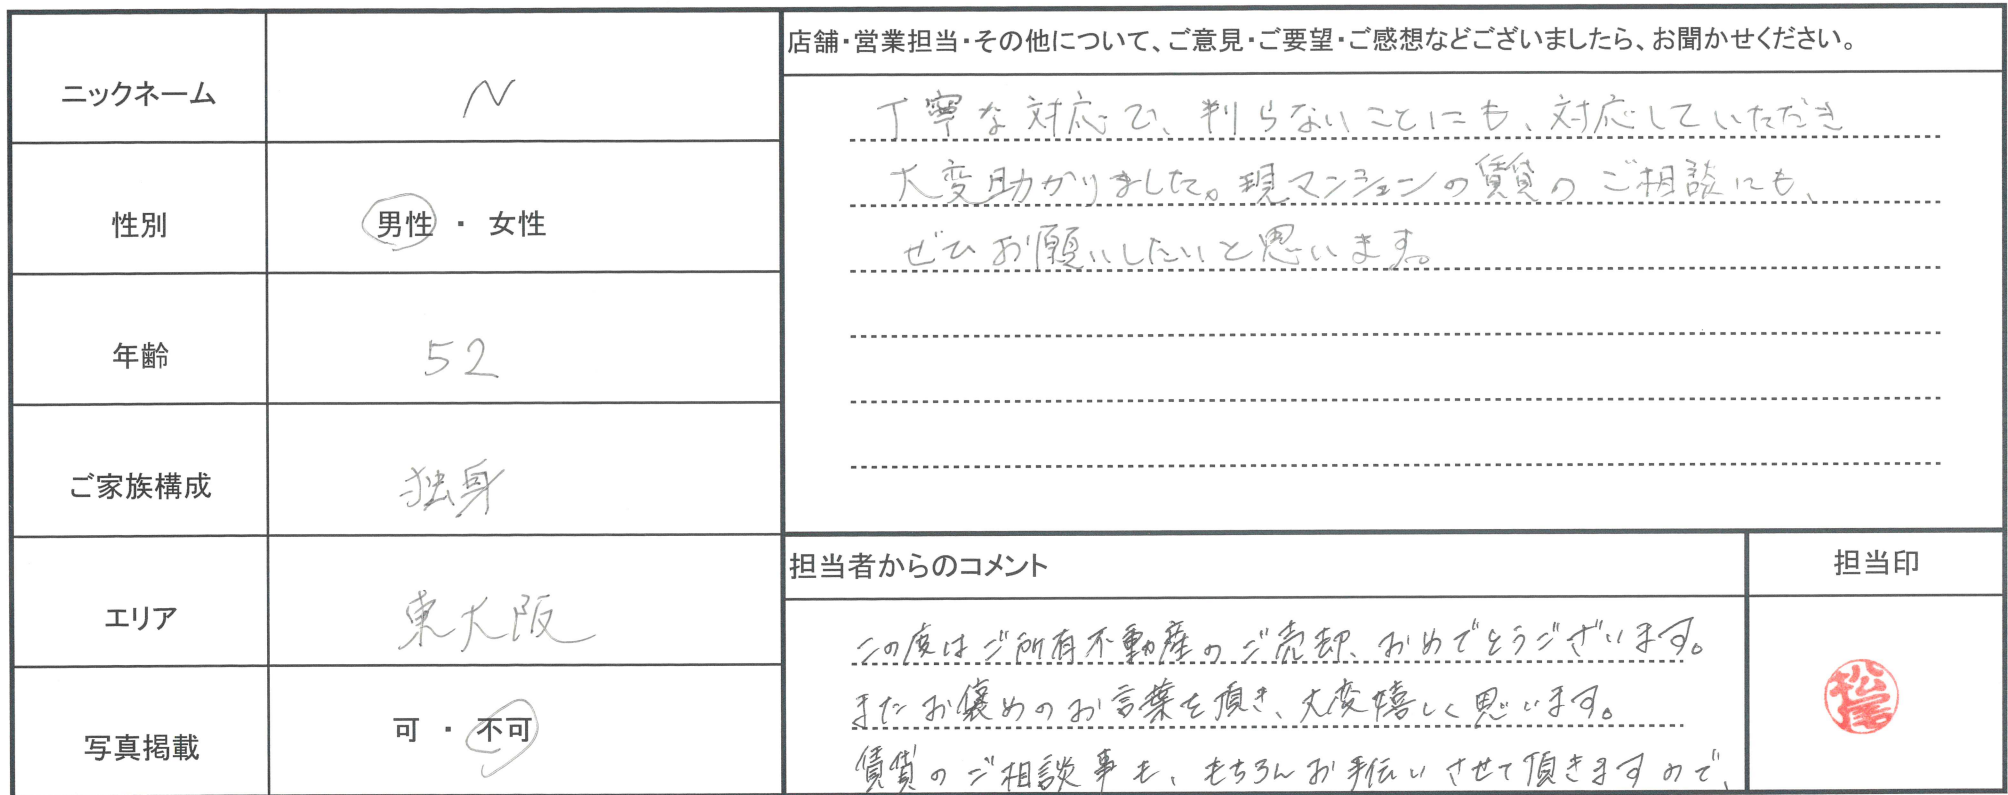 ニックネーム N
性別 男性 ・ 女性
年齢 52
ご家族構成 独身
エリア 東大阪
写真掲載 可 ・ 不可
店舗・営業担当・その他について、ご意見・ご要望・ご感想などございましたら、お聞かせください。
丁寧な対応で、判らないことにも、対応していただき
大変助かりました。現マンションの賃貸のご相談にも、
ぜひお願いしたいと思います。
担当者からのコメント
この度はご所有不動産のご売却、おめでとうございます。
またお褒めのお言葉を頂き、大変嬉しく思います。
賃貸のご相談事も、もちろんお手伝いさせて頂きますので、
担当印
松尾